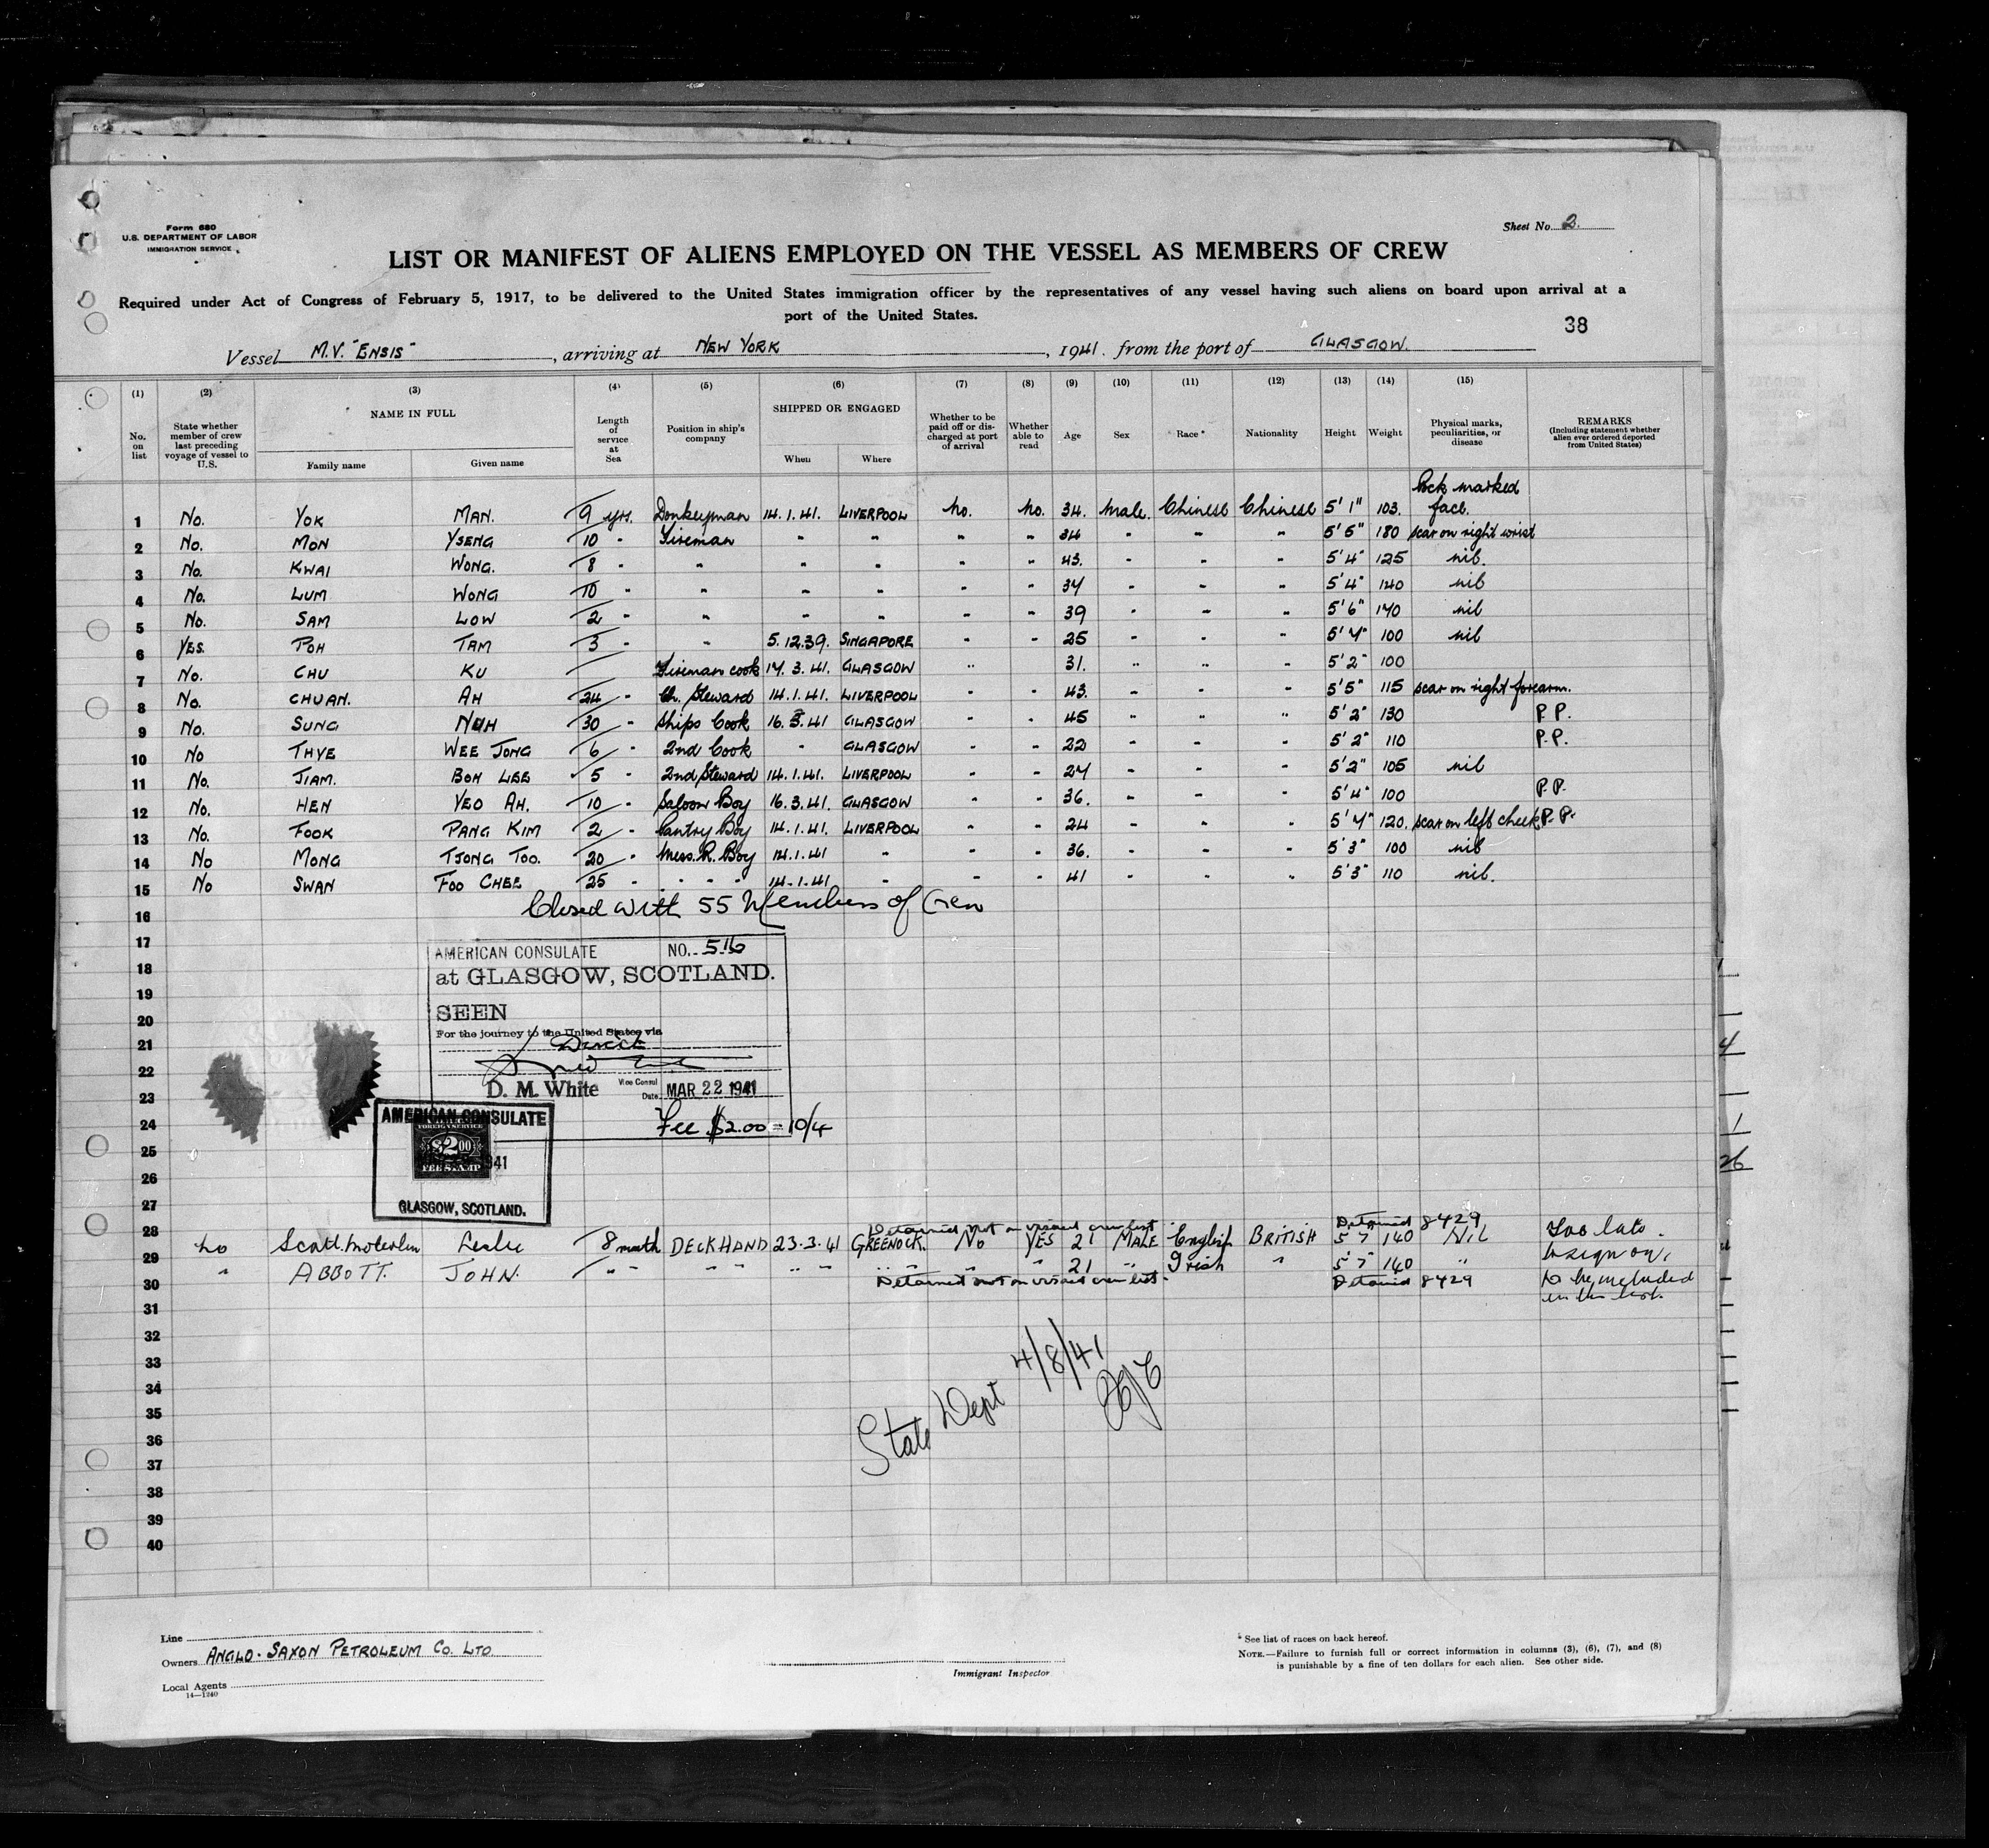 Form 680
U.S. DEPARTMENT OF LABOR
IMMIGRATION SERVICE
Sheet No. 2.
LIST OR MANIFEST OF ALIENS EMPLOYED ON THE VESSEL AS MEMBERS OF CREW
Required under Act of Congress of February 5, 1917, to be delivered to the United States immigration officer by the representatives of any vessel having such aliens on board upon arrival at a
port of the United States.
38
Vessel M.V. "ENSIS", arriving at NEW YORK, 1941. from the port of GLASGOW.
(1) (2) (3) (4) (5) (6) (7) (8) (9) (10) (11) (12) (13) (14) (15)
No. on list
State whether member of crew last preceding voyage of vessel to U.S.
NAME IN FULL
Family name
Given name
Length of service at Sea
Position in ship's company
SHIPPED OR ENGAGED
When
Where
Whether to be paid off or discharged at port of arrival
Whether able to read
Age
Sex
Race *
Nationality
Height
Weight
Physical marks, peculiarities, or disease
REMARKS
(Including statement whether alien ever ordered deported from United States)
1 No. YOK MAN. 9 yrs. Donkeyman 14.1.41. LIVERPOOL No. No. 34. Male. Chinese Chinese 5' 1" 103. Pock marked face.
2 No. MON YSENG 10 " Fireman " " " " 34 " " " 5' 5" 180 scar on right wrist
3 No. KWAI WONG. 8 " " " " " " 43. " " " 5' 4" 125 nil.
4 No. LUM WONG 10 " " " " " " 37 " " " 5' 4" 140 nil
5 No. SAM LOW 2 " " " " " " 39 " " " 5' 6" 170 nil
6 YES. POH TAM 3 " " 5.12.39. SINGAPORE " " 25 " " " 5' 7" 100 nil
7 No. CHU KU Fireman cook 17.3.41. GLASGOW " 31. " " " 5' 2" 100
8 No. CHUAN. AH 24 " Ch. Steward 14.1.41. LIVERPOOL " " 43. " " " 5' 5" 115 scar on right forearm.
9 No. SUNG NUH 30 " Ships Cook 16.3.41 GLASGOW " " 45 " " " 5' 2" 130 P.P.
10 No THYE WEE JONG 6 " 2nd Cook " GLASGOW " " 22 " " " 5' 2" 110 P.P.
11 No. JIAM. BOH LEE 5 " 2nd Steward 14.1.41. LIVERPOOL " " 27 " " " 5' 2" 105 nil
12 No. HEN YEO AH. 10 " Saloon Boy 16.3.41. GLASGOW " " 36. " " " 5' 4" 100 P.P.
13 No. FOOK PANG KIM 2 " Pantry Boy 14.1.41. LIVERPOOL " " 24 " " " 5' 7" 120. scar on left cheek P.P.
14 No MONG TJONG TOO. 20 " Mess. R. Boy 14.1.41 " " " 36. " " " 5' 3" 100 nil
15 No SWAN FOO CHEE 25 " " " " 14.1.41 " " " 41 " " " 5' 3" 110 nil.
16 Closed with 55 Members of Crew
17
18
19
20
21
22
23
24
25
26
27
AMERICAN CONSULATE NO. 516
at GLASGOW, SCOTLAND.
SEEN
For the journey to the United States via
Direct
D. M. White Vice Consul
Date MAR 22 1941
Fee $2.00 = 10/4
AMERICAN CONSULATE
FOREIGN SERVICE
$2.00
FEE STAMP
1941
GLASGOW, SCOTLAND.
28 Detained not on visaed crew list Detained 8429
29 No Leslie 8 month DECKHAND 23.3.41 GREENOCK. No YES 21 MALE English BRITISH 5 7 140 NIL Too late
to sign on,
30 " ABBOTT. JOHN. " " " " " " " " " " 21 " Irish " 5' 7" 140 " to be included
in this list.
Detained not on visaed crew list. Detained 8429
31
32
33
34
35
36
37
38
39
40
State Dept 4/8/41
4
1
26
Line
Owners ANGLO-SAXON PETROLEUM CO. LTD.
Local Agents
14—1240
Immigrant Inspector
* See list of races on back hereof.
NOTE.—Failure to furnish full or correct information in columns (3), (6), (7), and (8)
is punishable by a fine of ten dollars for each alien. See other side.